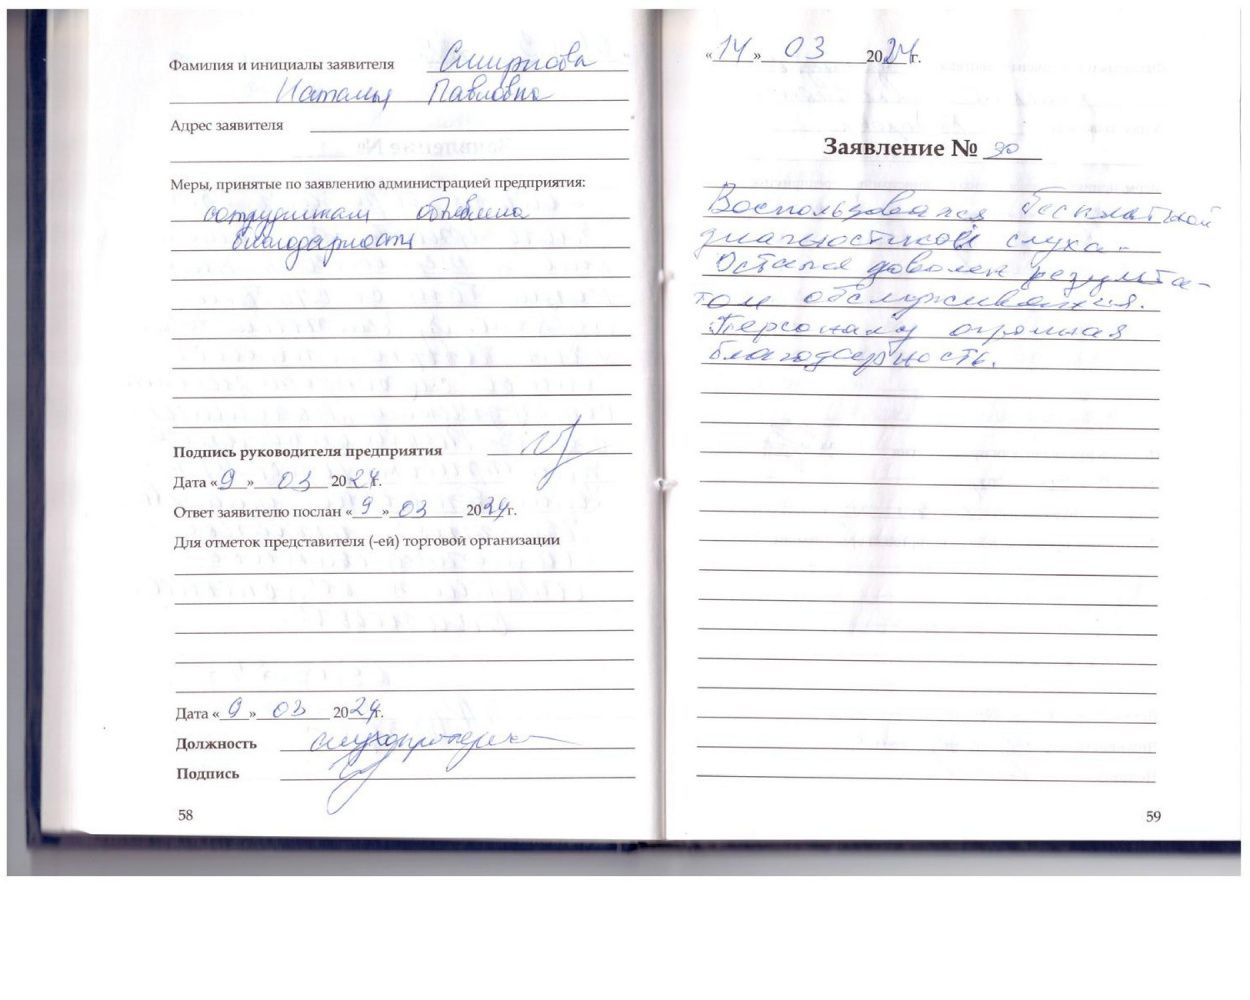 Фамилия и инициалы заявителя Смирнова
Наталья Павловна
Адрес заявителя
Меры, принятые по заявлению администрацией предприятия:
сотрудникам объявлена
благодарность
Подпись руководителя предприятия
Дата «9» 03 2024г.
Ответ заявителю послан «9» 03 2024г.
Для отметок представителя (-ей) торговой организации
Дата «9» 03 2024г.
Должность слухопротезист
Подпись
58
«14» 03 2024г.
Заявление № 30
Воспользовался бесплатной
диагностикой слуха.
Остался доволен результа-
том обслуживания.
Персоналу огромная
благодарность.
59